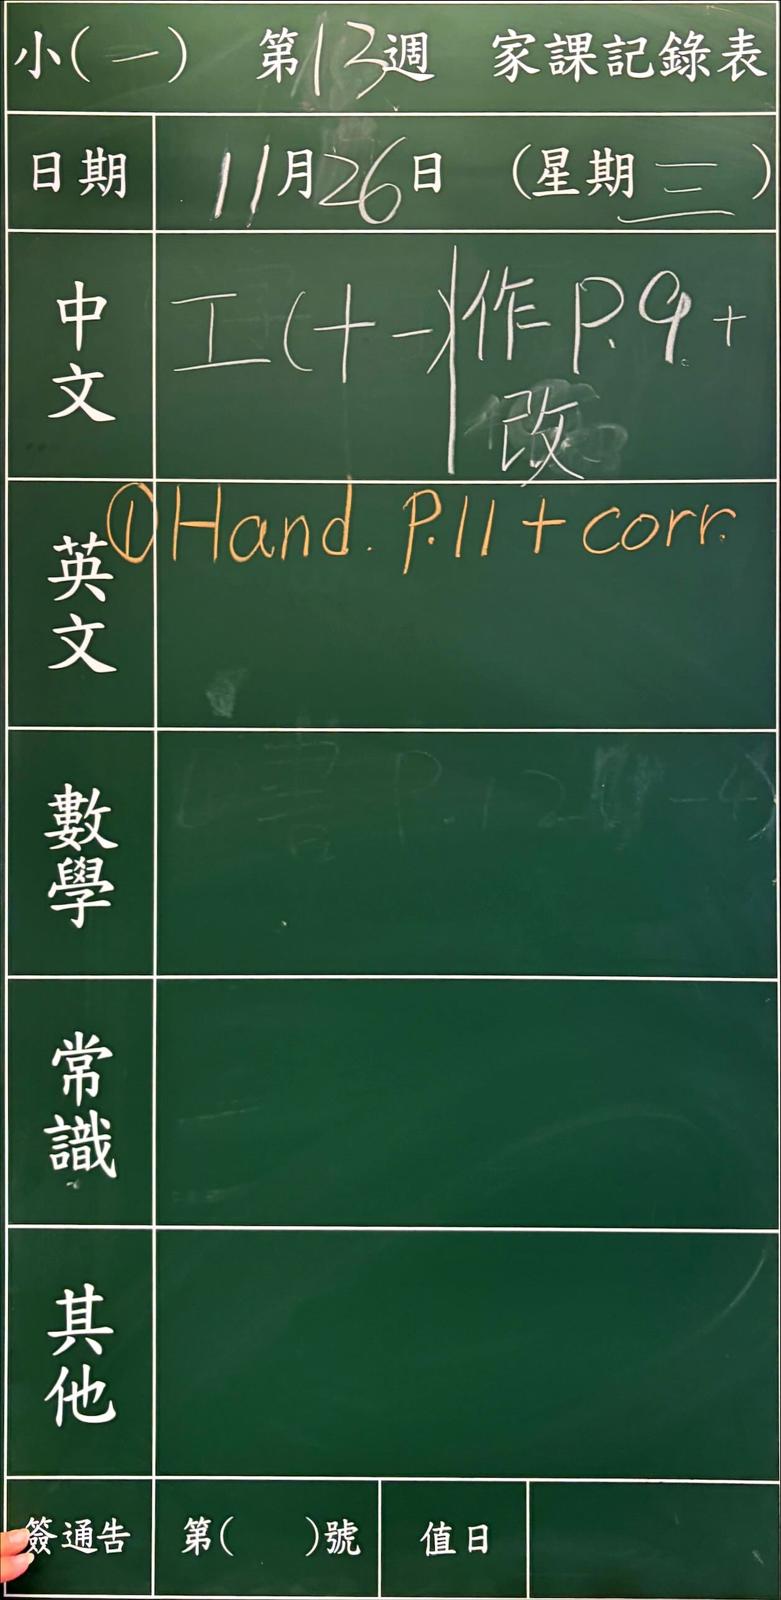 小(一) 第13週 家課記錄表
日期 11月26日 (星期三)
中文 工(十一) 作 P.9 +
改
英文 ① Hand. P.11 + corr.
數學
常識
其他
簽通告 第( )號 值日